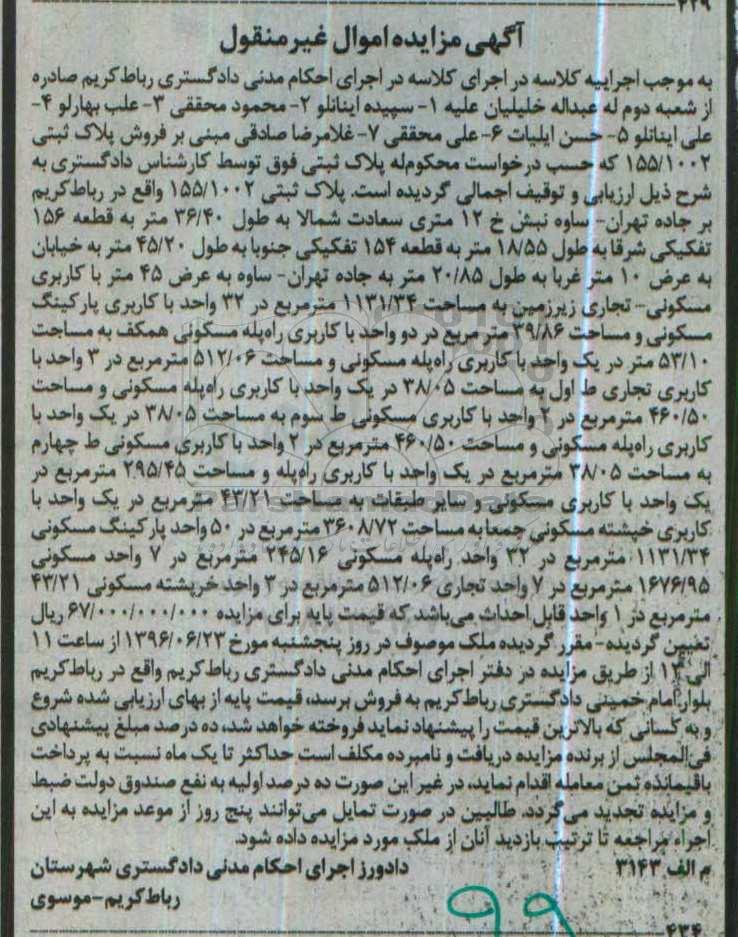 ۴۲۹
آگهی مزایده اموال غیرمنقول
به موجب اجراییه کلاسه در اجرای کلاسه در اجرای احکام مدنی دادگستری رباط‌کریم صادره
از شعبه دوم له عبداله خلیلیان علیه ۱- سپیده اینانلو ۲- محمود محققی ۳- علب بهارلو ۴-
علی اینانلو ۵- حسن ایلیات ۶- علی محققی ۷- غلامرضا صادقی مبنی بر فروش پلاک ثبتی
۱۵۵/۱۰۰۲ که حسب درخواست محکوم‌له پلاک ثبتی فوق توسط کارشناس دادگستری به
شرح ذیل ارزیابی و توقیف اجمالی گردیده است. پلاک ثبتی ۱۵۵/۱۰۰۲ واقع در رباط‌کریم
بر جاده تهران- ساوه نبش خ ۱۲ متری سعادت شمالا به طول ۳۶/۴۰ متر به قطعه ۱۵۶
تفکیکی شرقا به طول ۱۸/۵۵ متر به قطعه ۱۵۴ تفکیکی جنوبا به طول ۴۵/۲۰ متر به خیابان
به عرض ۱۰ متر غربا به طول ۲۰/۸۵ متر به جاده تهران- ساوه به عرض ۴۵ متر با کاربری
مسکونی- تجاری زیرزمین به مساحت ۱۱۳۱/۳۴ مترمربع در ۳۲ واحد با کاربری پارکینگ
مسکونی و مساحت ۳۹/۸۶ مترمربع در دو واحد با کاربری راه‌پله مسکونی همکف به مساحت
۵۳/۱۰ متر در یک واحد با کاربری راه‌پله مسکونی و مساحت ۵۱۲/۰۶ مترمربع در ۳ واحد با
کاربری تجاری ط اول به مساحت ۳۸/۰۵ در یک واحد با کاربری راه‌پله مسکونی و مساحت
۴۶۰/۵۰ مترمربع در ۲ واحد با کاربری مسکونی ط سوم به مساحت ۳۸/۰۵ در یک واحد با
کاربری راه‌پله مسکونی و مساحت ۴۶۰/۵۰ مترمربع در ۲ واحد با کاربری مسکونی ط چهارم
به مساحت ۳۸/۰۵ مترمربع در یک واحد با کاربری راه‌پله و مساحت ۲۹۵/۴۵ مترمربع در
یک واحد با کاربری مسکونی و سایر طبقات به مساحت ۴۳/۲۱ مترمربع در یک واحد با
کاربری خپشته مسکونی جمعا به مساحت ۳۶۰۸/۷۲ مترمربع در ۵۰ واحد پارکینگ مسکونی
۱۱۳۱/۳۴ مترمربع در ۳۲ واحد راه‌پله مسکونی ۲۴۵/۱۶ مترمربع در ۷ واحد مسکونی
۱۶۷۶/۹۵ مترمربع در ۷ واحد تجاری ۵۱۲/۰۶ مترمربع در ۳ واحد خرپشته مسکونی ۴۳/۲۱
مترمربع در ۱ واحد قابل احداث می‌باشد که قیمت پایه برای مزایده ۶۷/۰۰۰/۰۰۰/۰۰۰ ریال
تعیین گردیده- مقرر گردیده ملک موصوف در روز پنجشنبه مورخ ۱۳۹۶/۰۶/۲۳ از ساعت ۱۱
الی ۱۲ از طریق مزایده در دفتر اجرای احکام مدنی دادگستری رباط‌کریم واقع در رباط‌کریم
بلوار امام خمینی دادگستری رباط‌کریم به فروش برسد، قیمت پایه از بهای ارزیابی شده شروع
و به کسانی که بالاترین قیمت را پیشنهاد نماید فروخته خواهد شد، ده درصد مبلغ پیشنهادی
فی‌المجلس از برنده مزایده دریافت و نامبرده مکلف است حداکثر تا یک ماه نسبت به پرداخت
باقیمانده ثمن معامله اقدام نماید، در غیر این صورت ده درصد اولیه به نفع صندوق دولت ضبط
و مزایده تجدید می‌گردد. طالبین در صورت تمایل می‌توانند پنج روز از موعد مزایده به این
اجراء مراجعه تا ترتیب بازدید آنان از ملک مورد مزایده داده شود.
م الف ۳۱۴۳ دادورز اجرای احکام مدنی دادگستری شهرستان
رباط‌کریم-موسوی
۹۹
۴۳۴